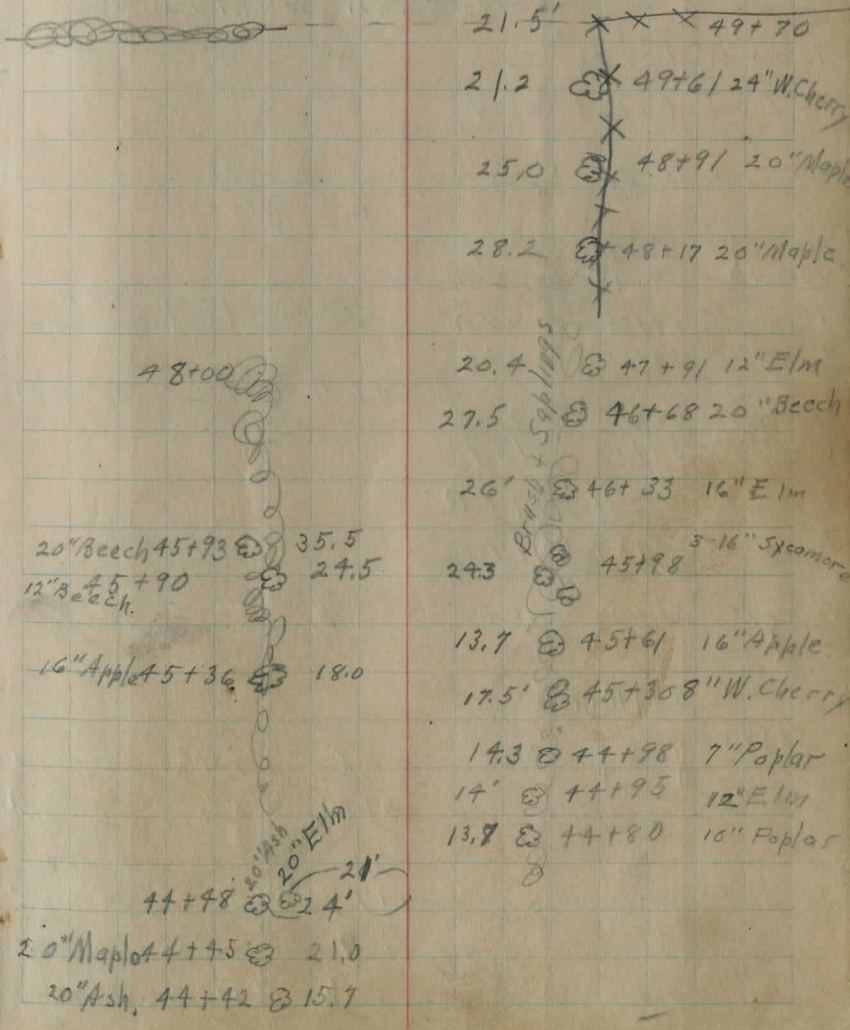 48+00
20"Beech 45+93 35.5
12"Beech. 45+90 24.5
16"Apple 45+36 18.0
20"Ash
20"Elm
21'
44+48 24'
20"Maple 44+45 21.0
20"Ash, 44+42 15.7
21.5' 49+70
21.2 49+61 24"W.Cherry
25.0 48+91 20"Maple
28.2 48+17 20"Maple
Brush + Saplings
20.4 47+91 12"Elm
27.5 46+68 20"Beech
26' 46+33 16"Elm
24.3 45+98 3-16"Sycamore
13.7 45+61 16"Apple.
17.5' 45+30 8"W.Cherry
14.3 44+98 7"Poplar
14' 44+95 12"Elm
13.7 44+80 10"Poplar